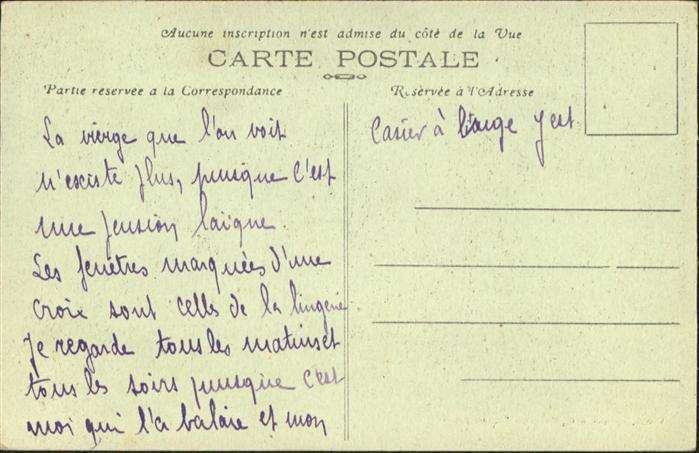 Aucune inscription n'est admise du côté de la Vue
CARTE POSTALE
Partie reservée a la Correspondance
Réservée à l'Adresse
La vierge que l'on voit
n'existe plus, puisque c'est
une pension laïque
Les fenêtres marquées d'une
croix sont celles de la lingerie
Je regarde tous les matins et
tous les soirs puisque c'est
moi qui l'a balaie et mon
Casier à linge y est